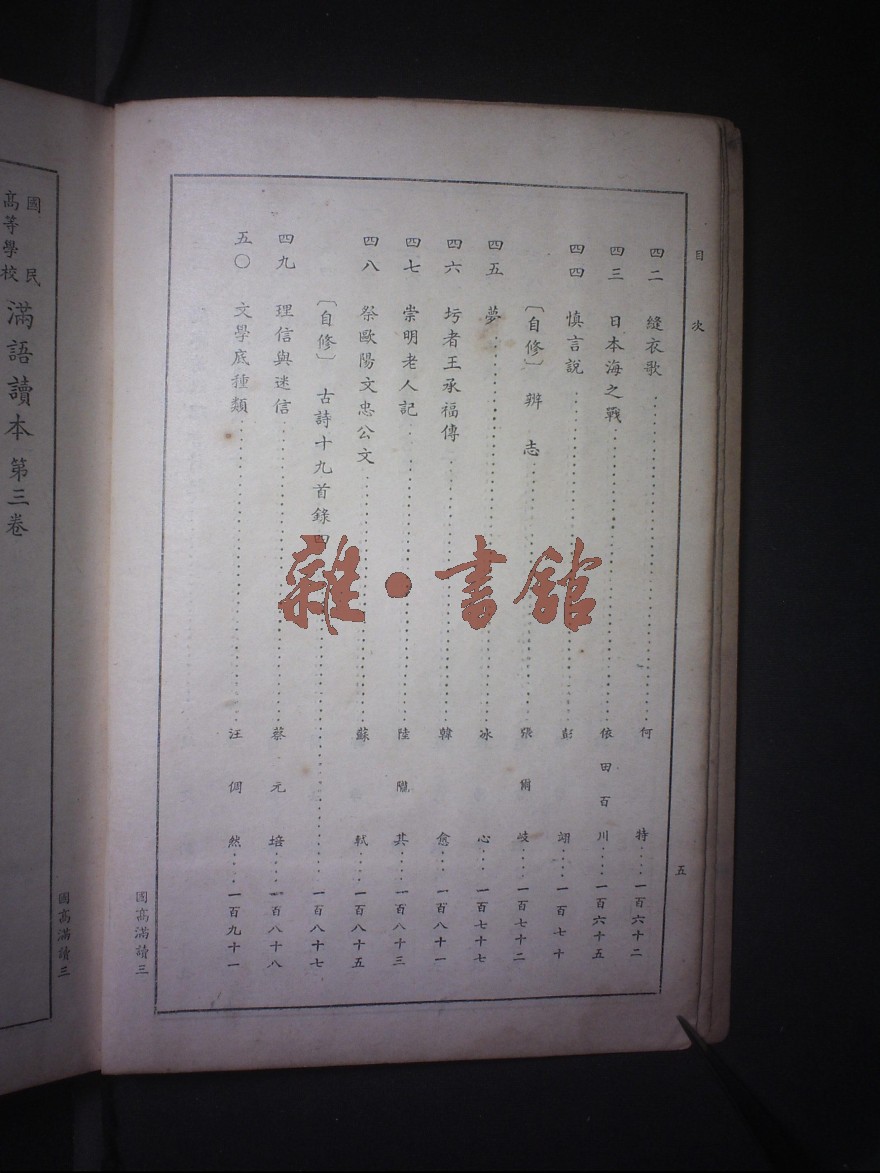 目次 五
四二 縫衣歌 何特 一百六十二
四三 日本海之戰 依田百川 一百六十五
四四 慎言說 彭翊 一百七十
〔自修〕 辨志 張爾岐 一百七十二
四五 夢 冰心 一百七十七
四六 圬者王承福傳 韓愈 一百八十一
四七 崇明老人記 陸隴其 一百八十三
四八 祭歐陽文忠公文 蘇軾 一百八十五
〔自修〕 古詩十九首錄四 一百八十七
四九 理信與迷信 蔡元培 一百八十八
五〇 文學底種類 汪倜然 一百九十一
國高滿讀三
雜·書館
國民
高等學校
滿語讀本 第三卷
國高滿讀三